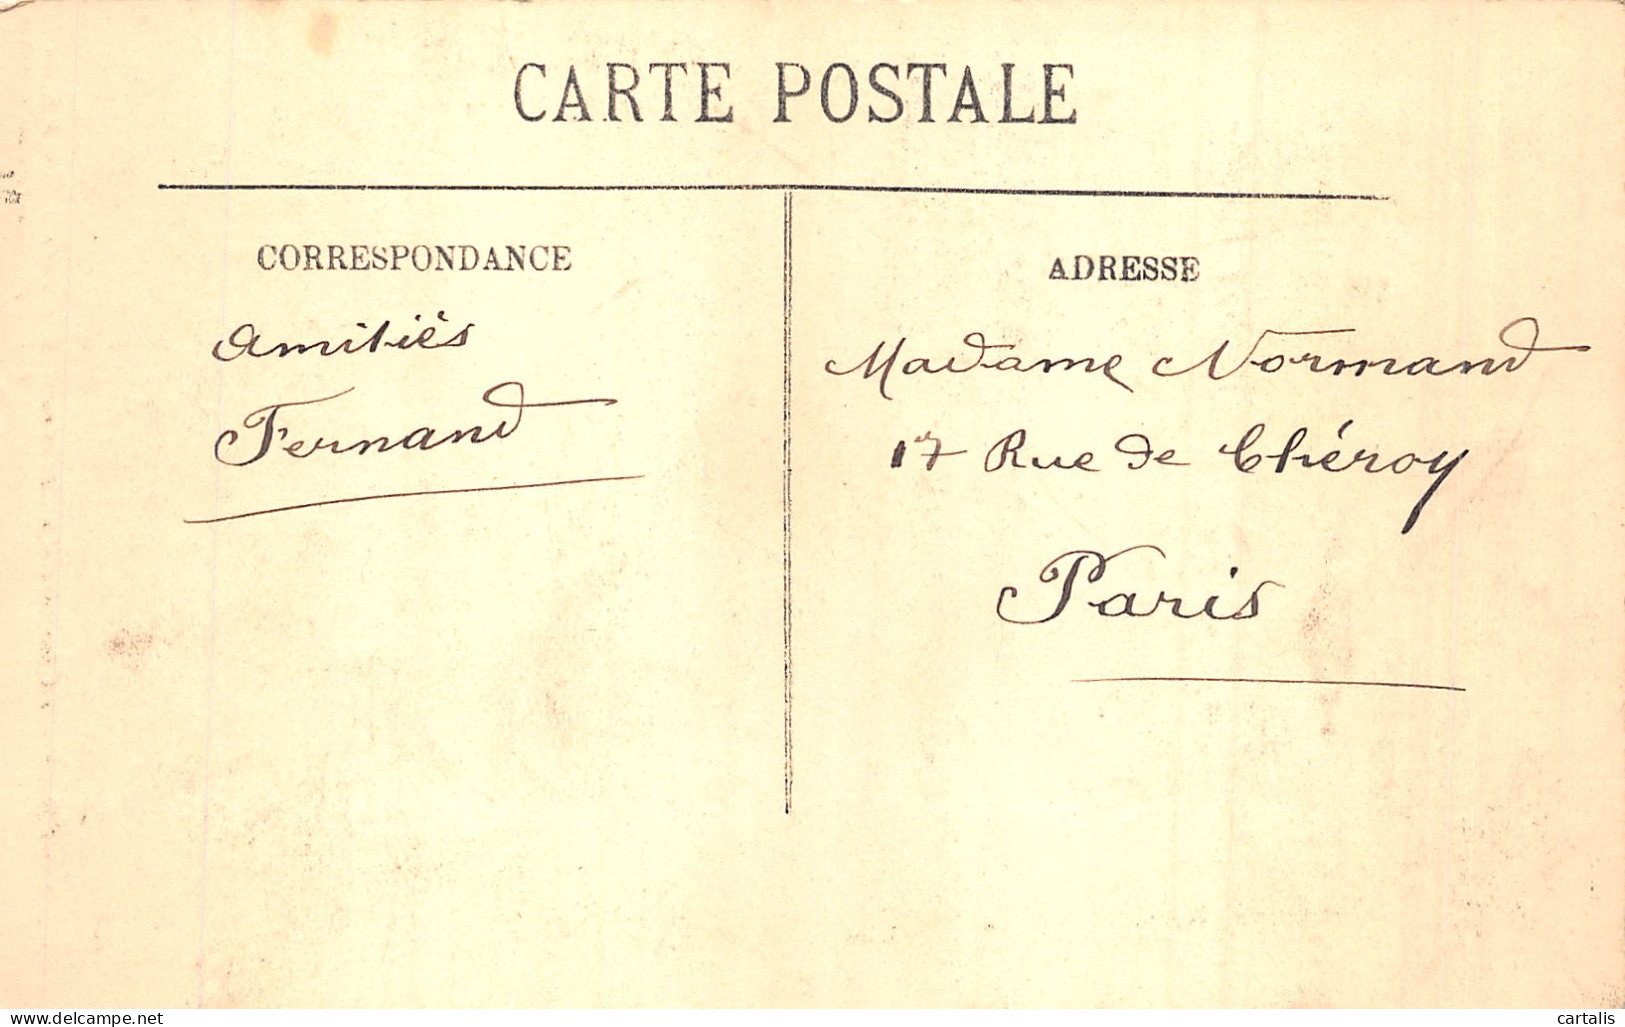 CARTE POSTALE
CORRESPONDANCE
Amitiés
Fernand
ADRESSE
Madame Normand
17 Rue de Chéroy
Paris
www.delcampe.net
cartalis